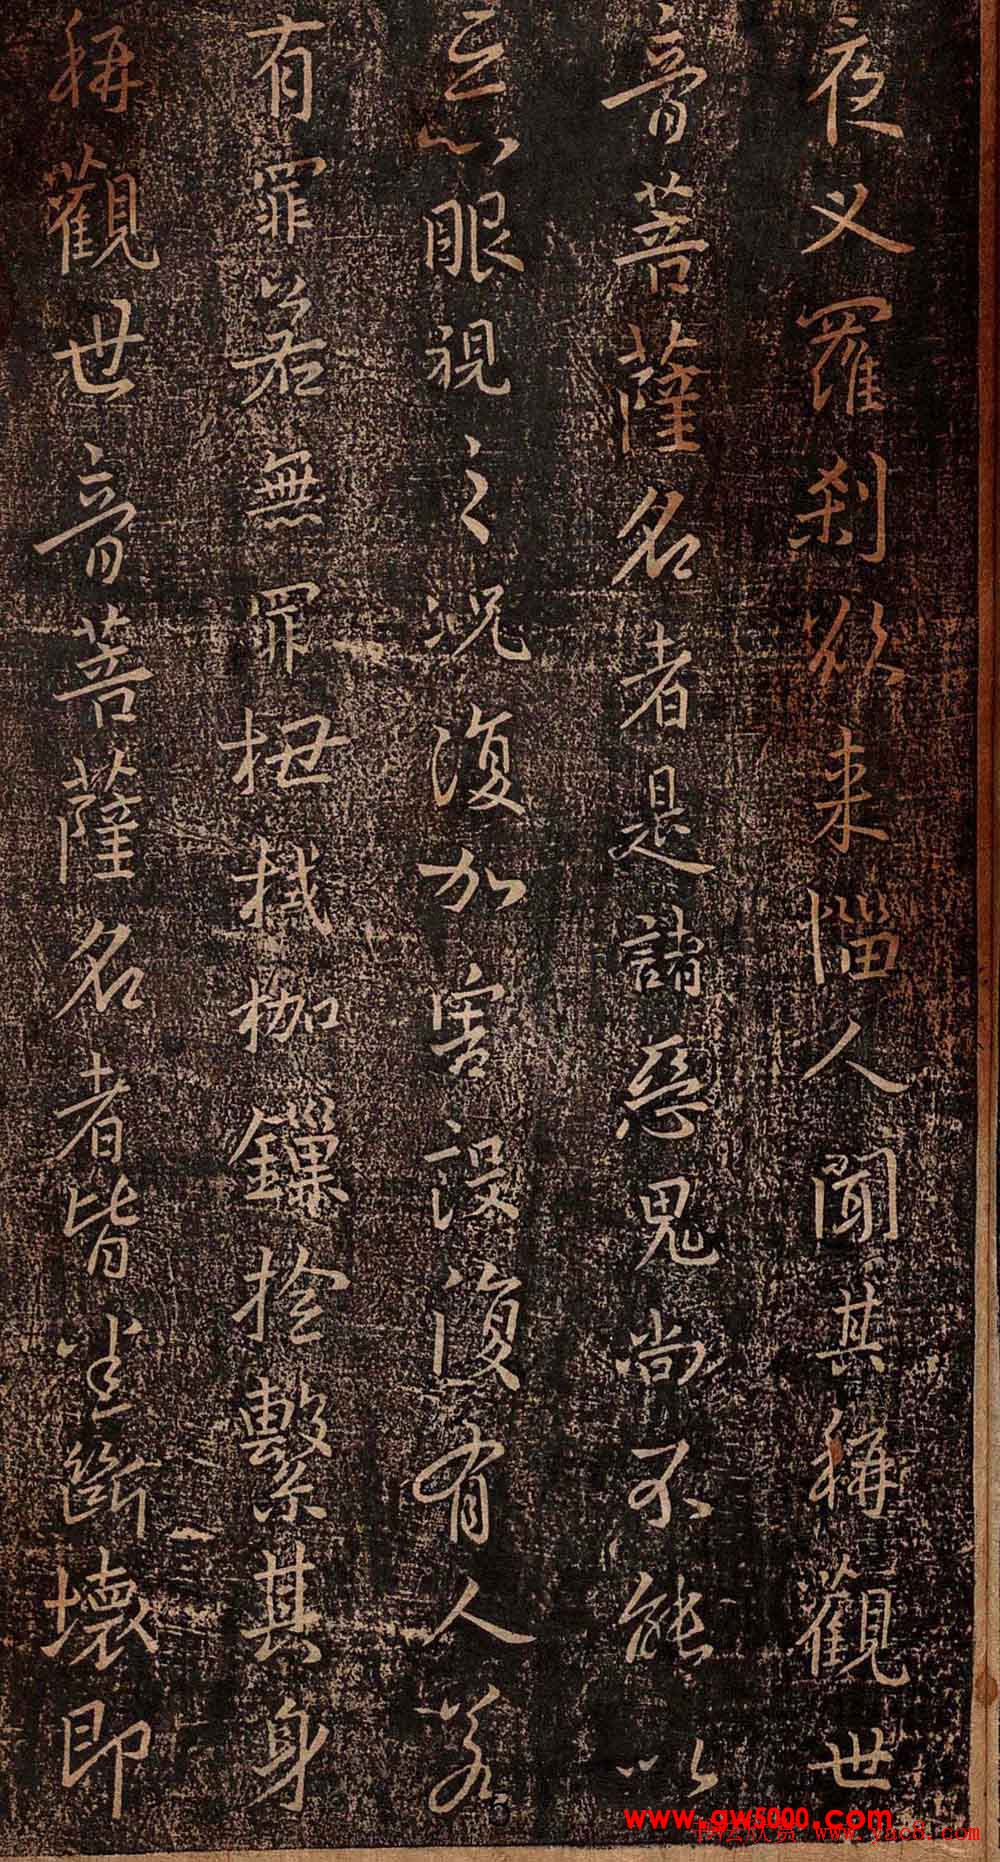 夜叉羅刹欲来惱人聞其稱觀世
音菩薩名者是諸惡鬼尚不能以
惡眼視之況復加害設復有人若
有罪若無罪杻械枷鏁撿繫其身
稱觀世音菩薩名者皆悉斷壞即
www.gw5000.com
书法欣赏 www.yac8.com